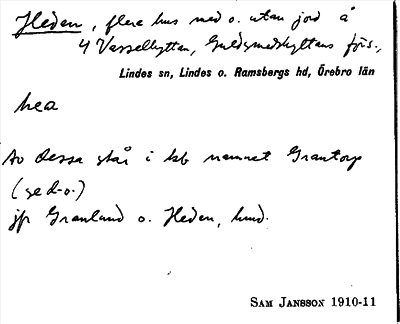 Heden, flere hus med o. utan jord å
4 Vasselhyttan, Guldsmedshyttans förs.,
Lindes sn, Lindes o. Ramsbergs hd, Örebro län
hea
Av dessa står i kb namnet Grantorp
(se d-o.)
jfr Granlund o. Heden, hmd.
SAM JANSSON 1910-11